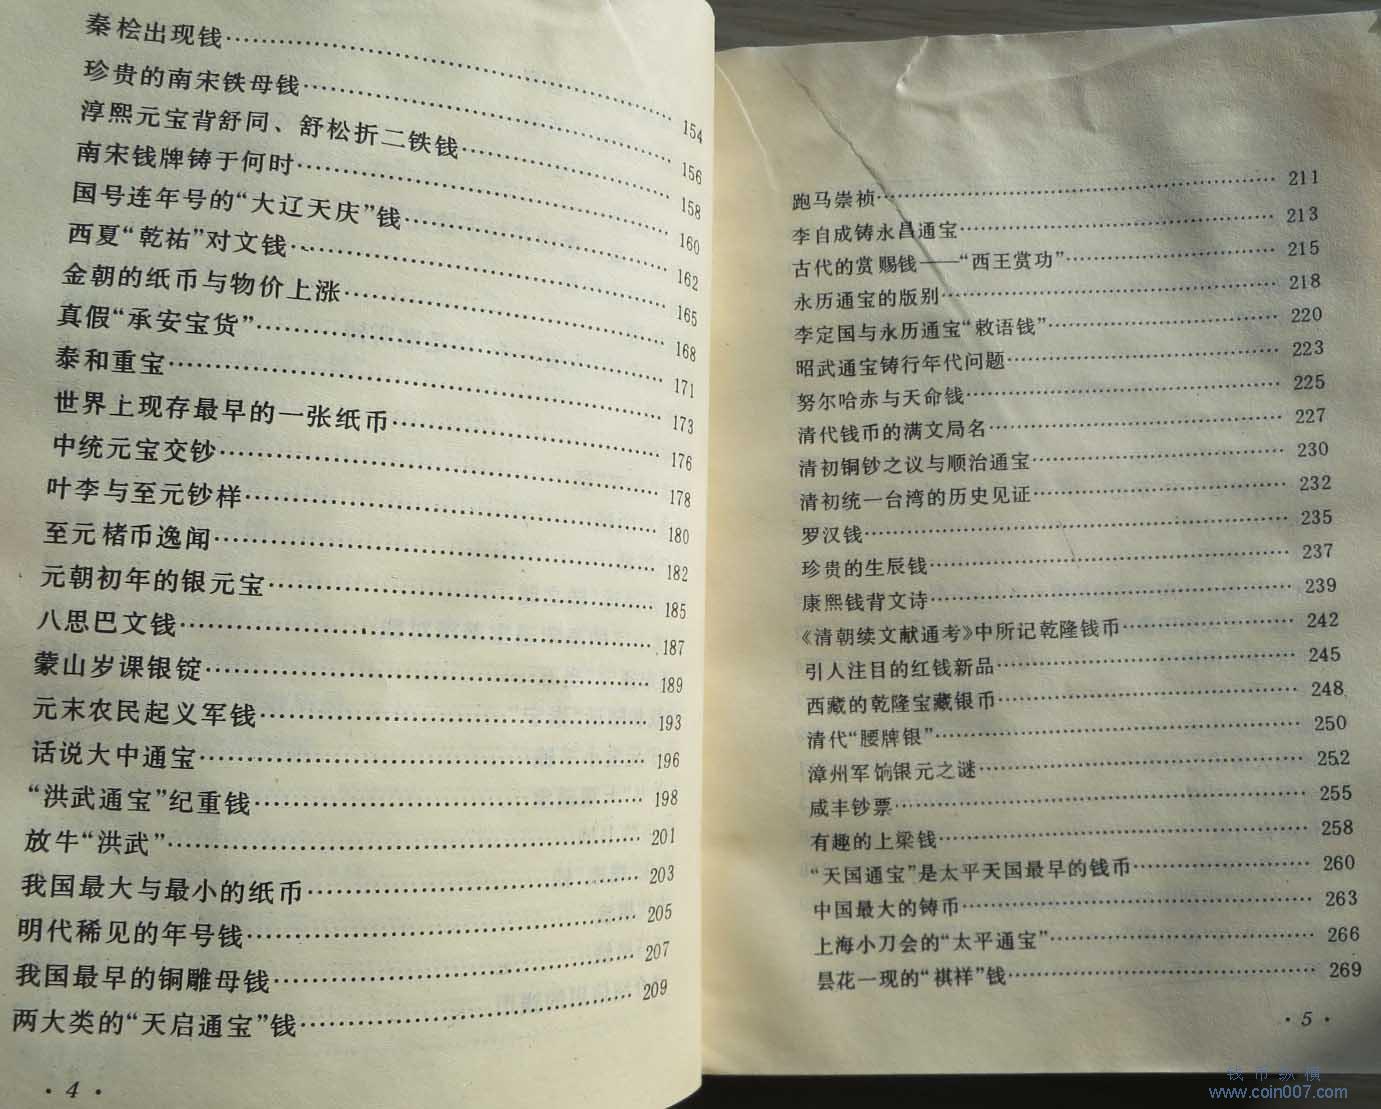 秦桧出现钱……154
珍贵的南宋铁母钱……156
淳熙元宝背舒同、舒松折二铁钱……158
南宋钱牌铸于何时……160
国号连年号的“大辽天庆”钱……162
西夏“乾祐”对文钱……165
金朝的纸币与物价上涨……168
真假“承安宝货”……171
泰和重宝……173
世界上现存最早的一张纸币……176
中统元宝交钞……178
叶李与至元钞样……180
至元楮币逸闻……182
元朝初年的银元宝……185
八思巴文钱……187
蒙山岁课银锭……189
元末农民起义军钱……193
话说大中通宝……196
“洪武通宝”纪重钱……198
放牛“洪武”……201
我国最大与最小的纸币……203
明代稀见的年号钱……205
我国最早的铜雕母钱……207
两大类的“天启通宝”钱……209
· 4 ·
跑马崇祯……211
李自成铸永昌通宝……213
古代的赏赐钱——“西王赏功”……215
永历通宝的版别……218
李定国与永历通宝“敕语钱”……220
昭武通宝铸行年代问题……223
努尔哈赤与天命钱……225
清代钱币的满文局名……227
清初铜钞之议与顺治通宝……230
清初统一台湾的历史见证……232
罗汉钱……235
珍贵的生辰钱……237
康熙钱背文诗……239
《清朝续文献通考》中所记乾隆钱币……242
引人注目的红钱新品……245
西藏的乾隆宝藏银币……248
清代“腰牌银”……250
漳州军饷银元之谜……252
咸丰钞票……255
有趣的上梁钱……258
“天国通宝”是太平天国最早的钱币……260
中国最大的铸币……263
上海小刀会的“太平通宝”……266
昙花一现的“祺祥”钱……269
· 5 ·
钱币纵横
www.coin007.com